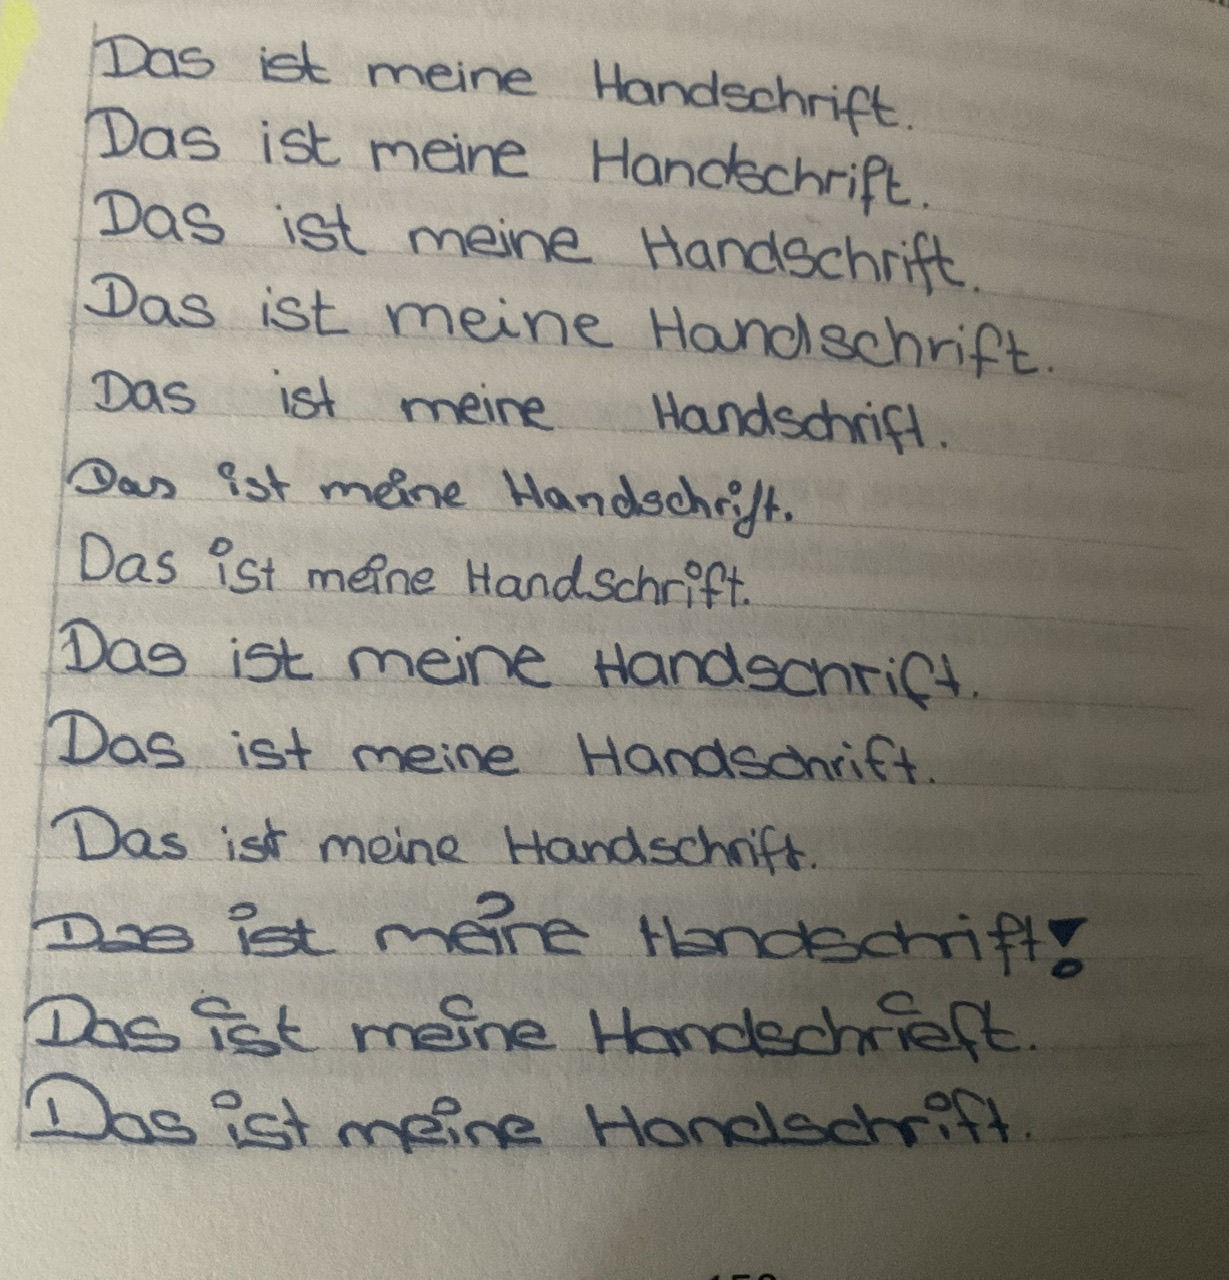 Das ist meine Handschrift.
Das ist meine Handschrift.
Das ist meine Handschrift.
Das ist meine Handschrift.
Das ist meine Handschrift.
Das ist meine Handschrift.
Das ist meine Handschrift.
Das ist meine Handschrift.
Das ist meine Handschrift.
Das ist meine Handschrift.
Das ist meine Handschrift!
Das ist meine Handschrieft.
Das ist meine Handschrift.